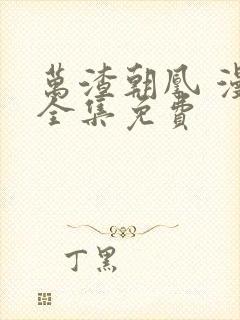 萬渣朝凰 漫
全集免費
丁黑